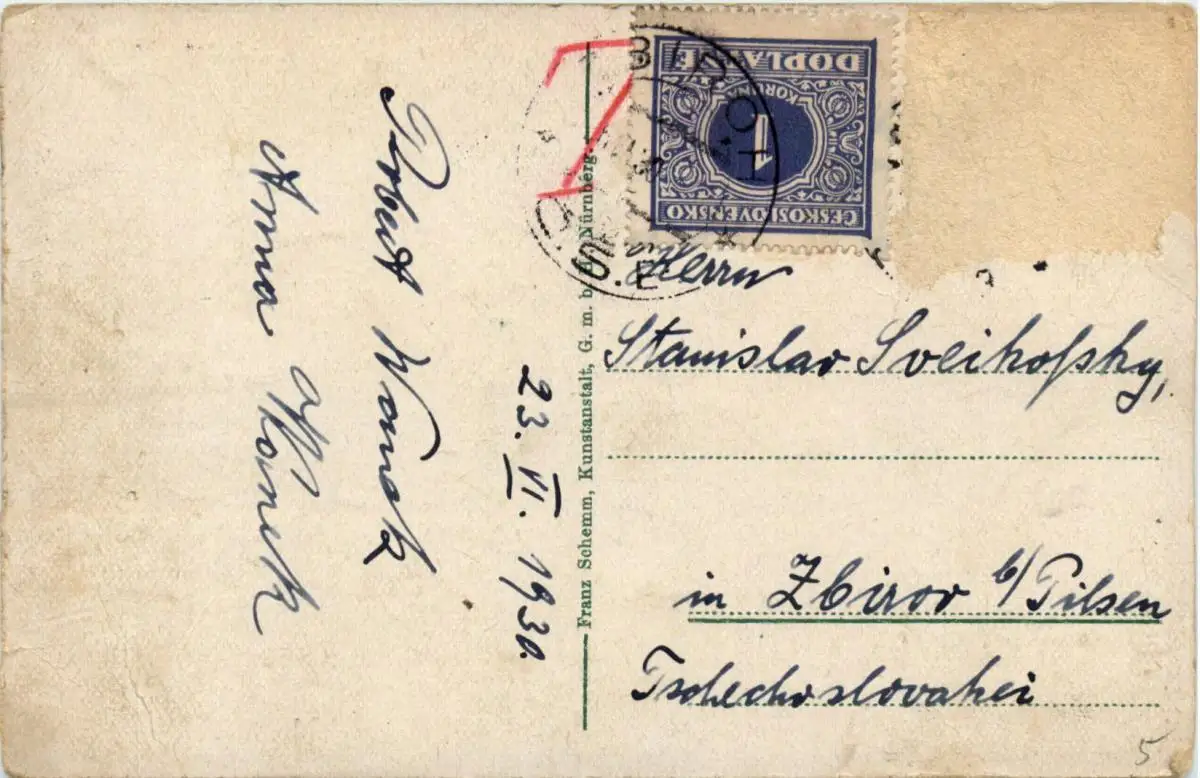 Robert Konetz
Anna Konetz
23. VI. 1930.
Franz Schemm, Kunstanstalt, G. m. b. Nürnberg.
DOPLATNÉ
KORUNA
1
ČESKOSLOVENSKO
ZBIROH
T
Herrn
Stanislav Sveihofsky,
in Zbirov b/ Pilsen
Tschechoslovakei
5